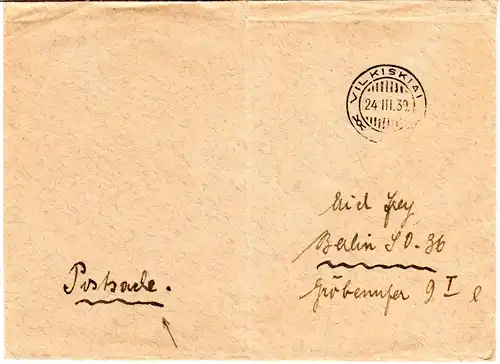 VILKIŠKIAI
24 III. 39
Erich Frey
Berlin SO. 36
Gröbenufer 9 I
Postsache.